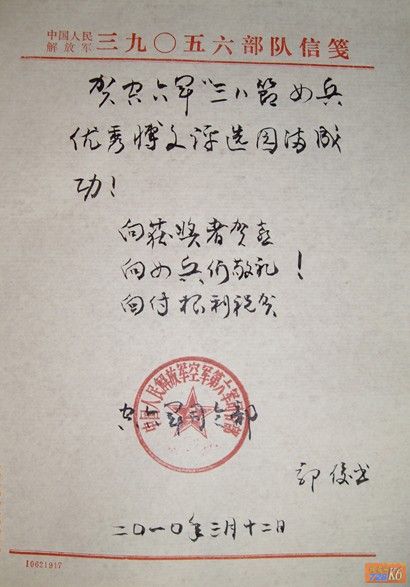 中国人民
解放军 三九〇五六部队信笺
贺空六军“三八”节女兵
优秀博文评选圆满成
功!
向获奖者贺喜
向女兵们敬礼!
向付根利祝贺
中国人民解放军空军第六军司令部
空六军司令部
二〇一〇年三月十二日
10621917